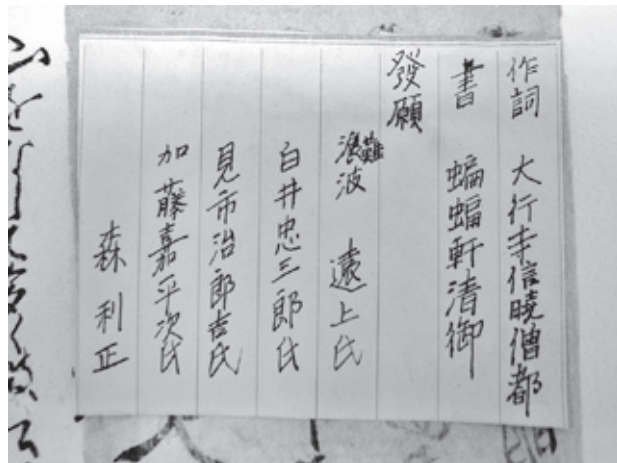 作詞　大行寺信曉僧都
書　蝙蝠軒清御
發願
難波　遠上氏
白井忠三郎氏
見市治郎吉氏
加藤嘉平次氏
森利正